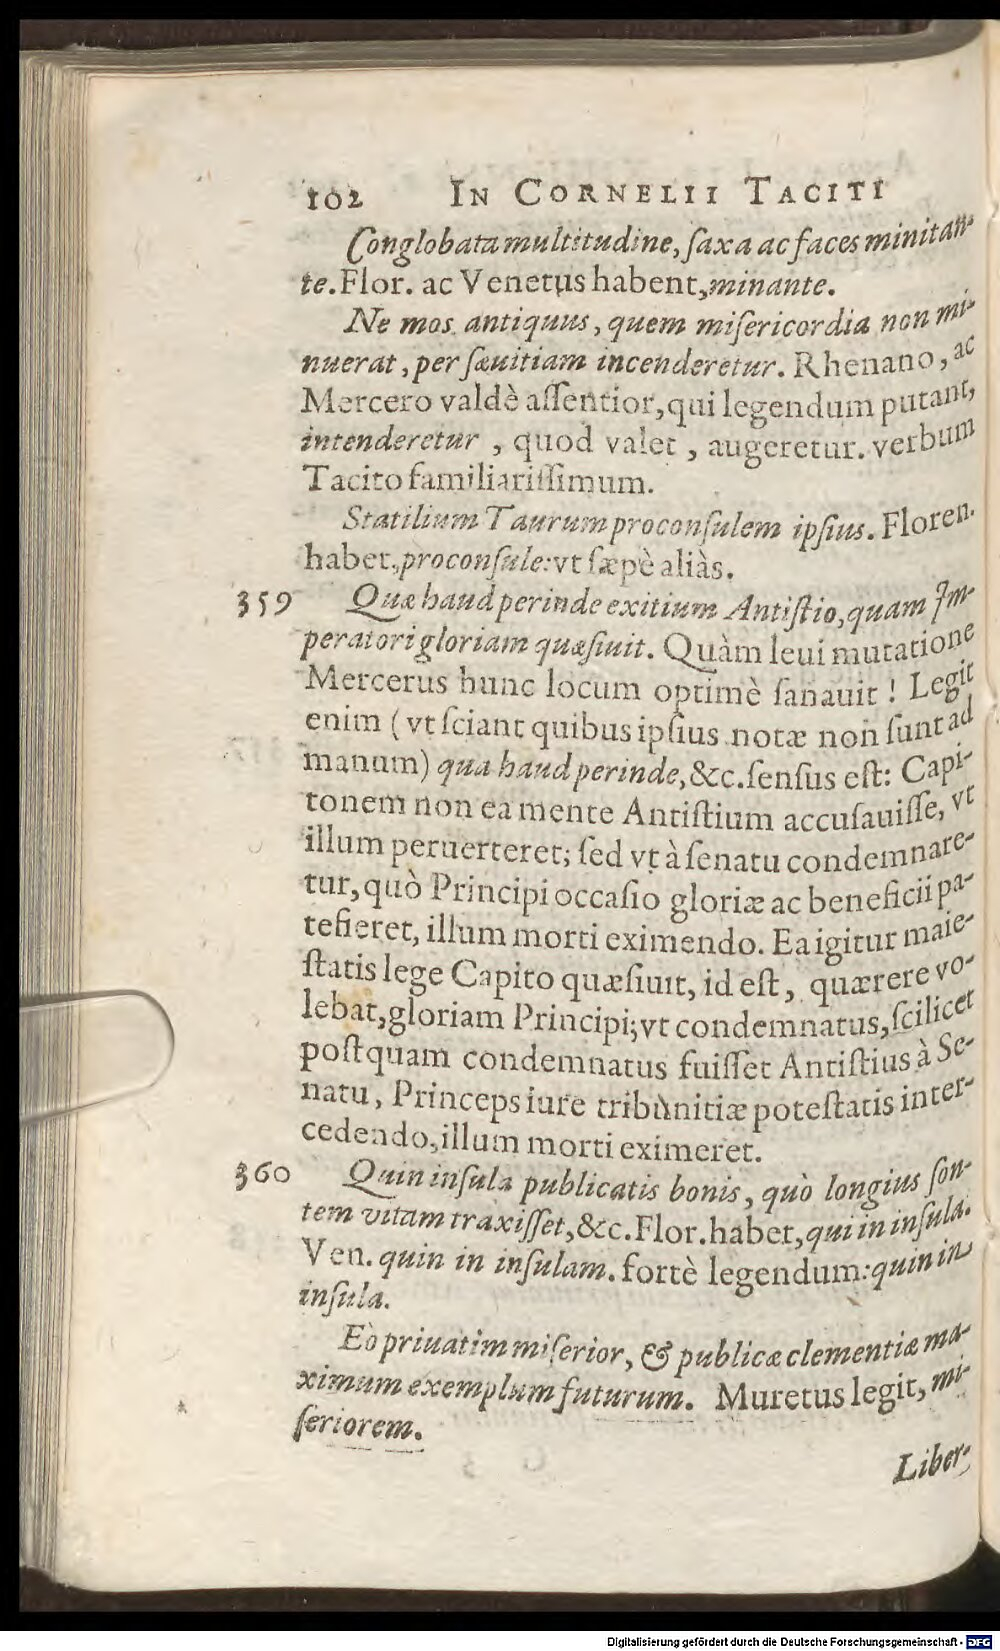 102 IN CORNELII TACITI
Conglobata multitudine, ſaxa ac faces minitan-
te. Flor. ac Venetus habent, minante.
Ne mos antiquus, quem miſericordia non mi-
nuerat, per ſæuitiam incenderetur. Rhenano, ac
Mercero valdè aſſentior, qui legendum putant,
intenderetur, quod valet, augeretur. verbum
Tacito familiariſſimum.
Statilium Taurum proconſulem ipſius. Floren.
habet, proconſule: vt ſæpè aliàs.
359 Quæ haud perinde exitium Antiſtio, quam Im-
peratori gloriam quæſiuit. Quàm leui mutatione
Mercerus hunc locum optimè ſanauit! Legit
enim (vt ſciant quibus ipſius notæ non ſunt ad
manum) qua haud perinde, &c. ſenſus eſt: Capi-
tonem non ea mente Antiſtium accuſauiſſe, vt
illum peruerteret; ſed vt à ſenatu condemnare-
tur, quò Principi occaſio gloriæ ac beneficii pa-
tefieret, illum morti eximendo. Ea igitur maie-
ſtatis lege Capito quæſiuit, id eſt, quærere vo-
lebat, gloriam Principi; vt condemnatus, ſcilicet
poſtquam condemnatus fuiſſet Antiſtius à Se-
natu, Princeps iure tribùnitiæ poteſtatis inter-
cedendo, illum morti eximeret.
360 Quin inſula publicatis bonis, quò longius ſon-
tem vitam traxiſſet, &c. Flor. habet, qui in inſula.
Ven. quin in inſulam. fortè legendum: quin in
inſula.
Eò priuatim miſerior, & publicæ clementiæ ma-
ximum exemplum futurum. Muretus legit, mi-
ſeriorem.
Liber,
Digitalisierung gefördert durch die Deutsche Forschungsgemeinschaft - DFG